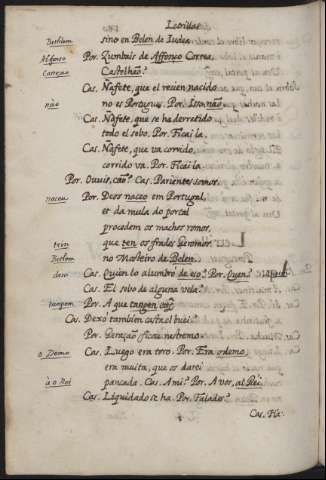 Letrillas
Bethlem sino en Belen de Iudea
Alfonso Por. Zumbais de Affonso Correa,
Castelhaõ?
Cas. Ñafete, que el recien nacido
não no es Portugues. Por. Isso naõ.
Cas. Ñafete, que se ha derretido
todo el sebo. Por. Ficai la.
Cas. Ñafete, que va corrido,
corrido va. Por. Ficai la.
Por. Cas. Parientes somos.
naceu Por. Deos naceo em Portugal,
et da mula do portal
procedem os machos romos,
que ten os frades Geromos
no Mosteiro de Belen.
Cas. Quien lo alumbró de eso? Por. Quen?
Cas. El sebo de alguna vela.
tangem Por. A que tangen
Cas. Dexó tambien casta el buei
Por.
o Demo Cas. Luego era toro. Por. Era odemo,
era muita, que os darei
pancada. Cas. A mi? Por. A vos, al Rei.
Cas. Liquidado se ha. Por.
Cas. Ha